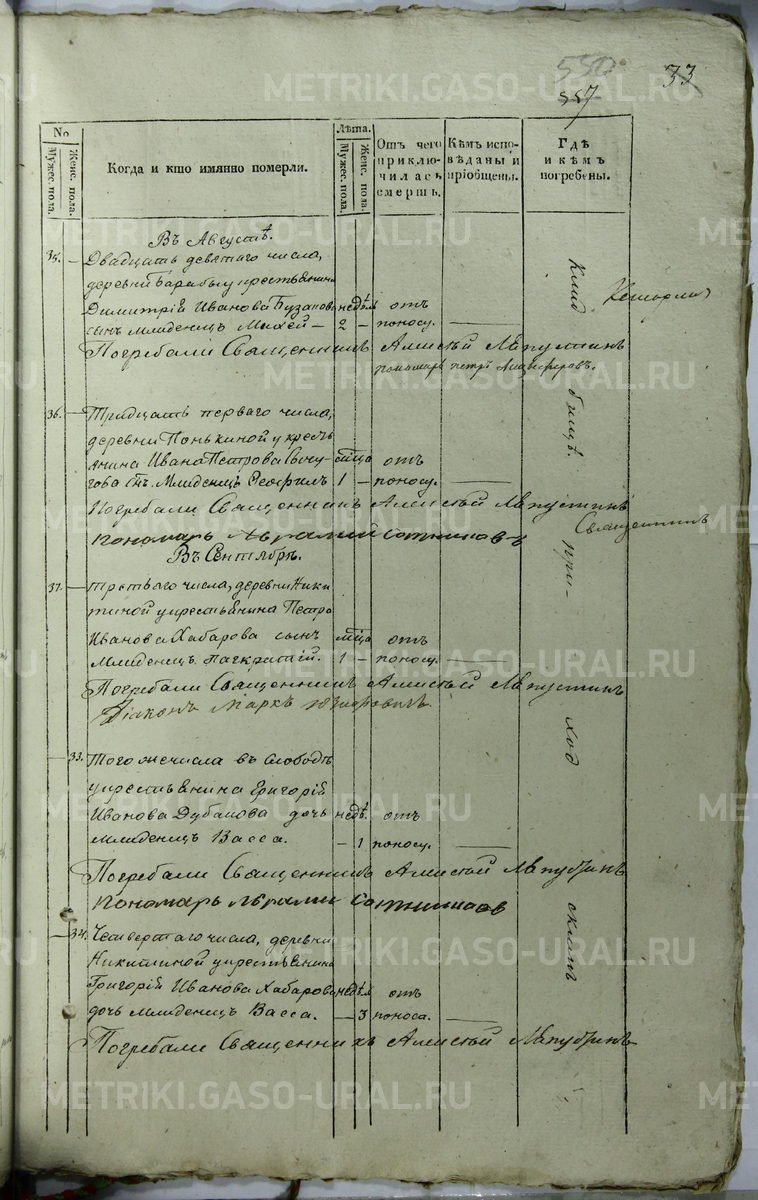 550
557
33
No
Мужес. пола.
Женс. пола.
Когда и кто имянно померли.
Лѣта.
Мужес. пола.
Женс. пола.
Отъ чего приключилась смерть.
Кѣмъ исповѣданы и приобщены.
Гдѣ и кѣмъ погребены.
Въ Августѣ.
35. — Двадцать девятаго числа,
деревни Барабы крестьянина
Димитрія Иванова Бузанова недѣль отъ
сынъ младенецъ Михей — 2 — поносу.
Погребали Священникъ Алексѣй Лапустинъ
пономарь Петръ
36. — Тридцать перваго числа,
деревни Понькиной у кресть-
янина Ивана Петрова мѣсяца отъ
сынъ Младенецъ 1 — поносу.
Погребали Священникъ Алексѣй Лапустинъ
пономарь Аврамий Сотниковъ
Священникъ
Въ Сентябрѣ.
37. — третьяго числа, деревни Ники-
тиной у крестьянина Петра
Иванова Хабарова сынъ мѣсяца отъ
Младенецъ Панкратій. 1 — поносу.
Погребали Священникъ Алексѣй Лапустинъ
Діаконъ Маркъ
33. Того же числа въ слободѣ
у крестьянина Григорія
Иванова Дубакова дочь недѣ. отъ
младенецъ Васса. — 1 поносу.
Погребали Священникъ Алексѣй
пономарь Аврамий
34. Четвертаго числа, деревни
Никитиной у крестьянина
Григорія Иванова Хабарова недѣль отъ
дочь младенецъ Васса. — 3 поноса.
Погребали Священникъ Алексѣй
Клад
бищѣ.
при-
ход
скомъ
METRIKI.GASO-URAL.RU